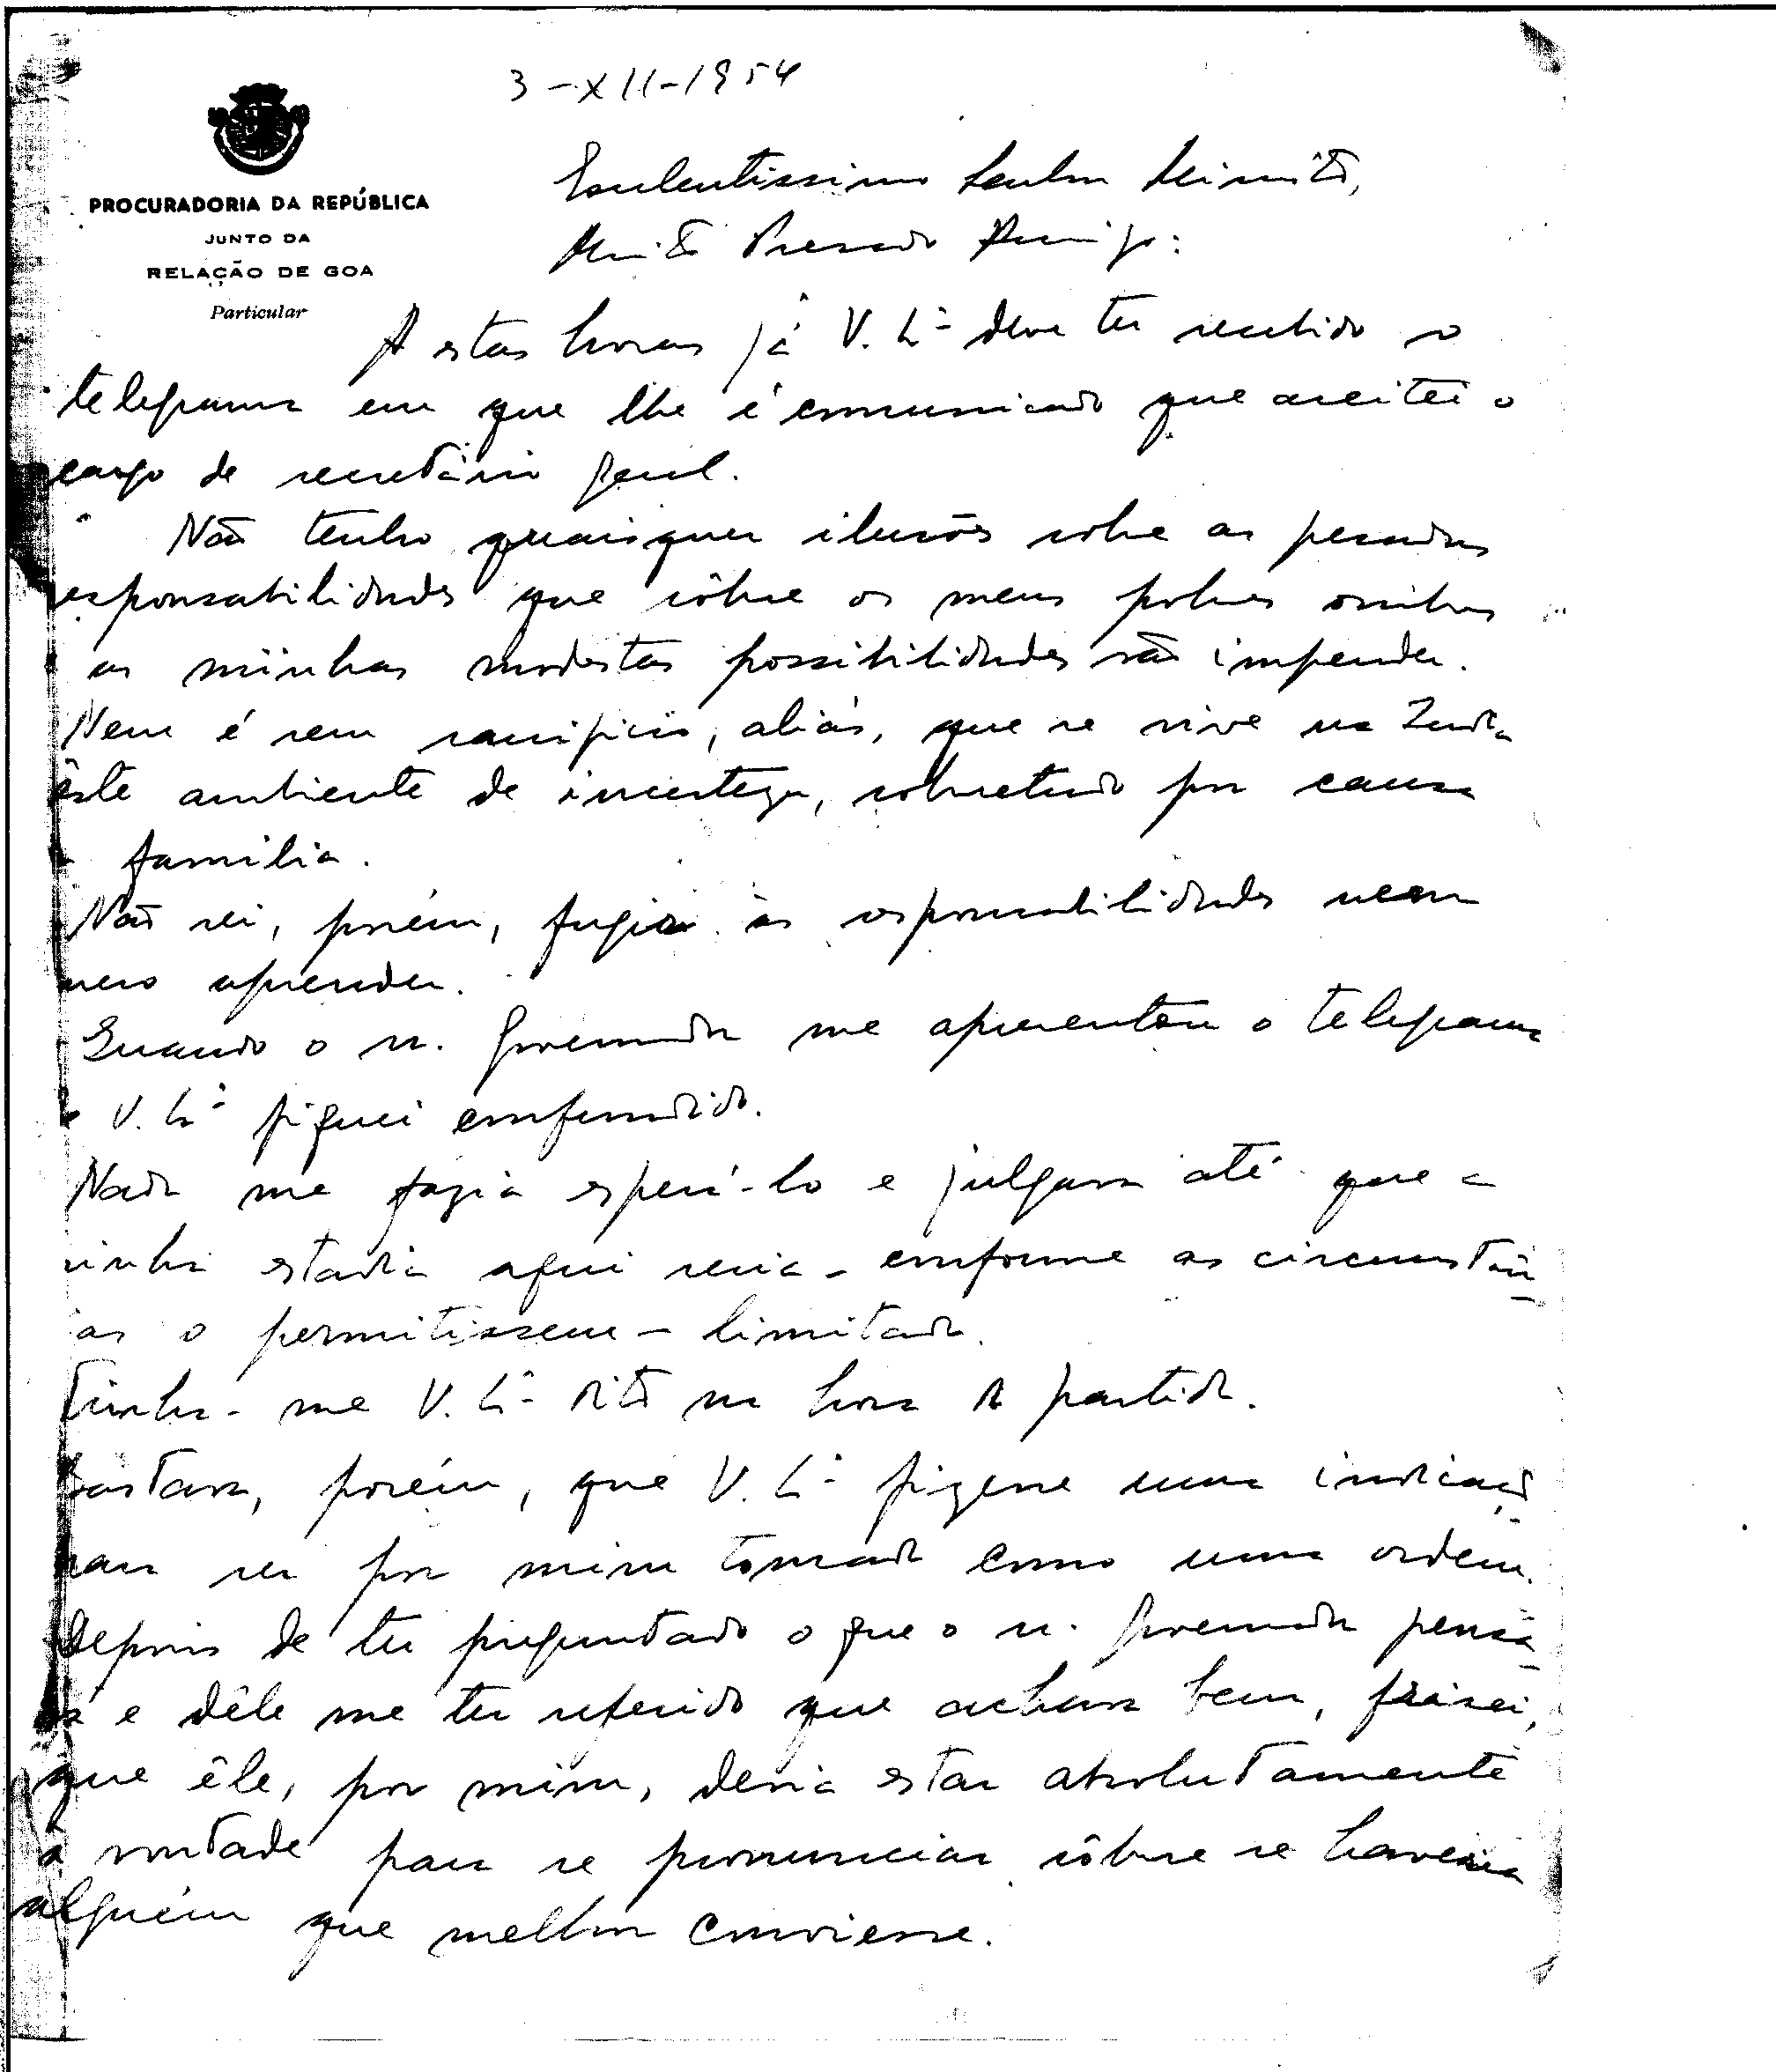 3-XII-1954
PROCURADORIA DA REPÚBLICA
JUNTO DA
RELAÇÃO DE GOA
Particular
Excelentíssimo Senhor Ministro,
Muito Prezado Amigo:
A estas horas já V. Ex.ª deve ter recebido o
telegrama em que lhe é comunicado que aceitei o
cargo de secretário geral.
Não tenho quaisquer ilusões sobre as pesadas
responsabilidades que sôbre os meus pobres ombros
as minhas modestas possibilidades vão impender.
Nem é sem sacrifício, aliás, que se vive na India
este ambiente de incerteza, sobretudo por causa
família.
Não sei, porém, fugir às responsabilidades nem
quero aprender.
Quando o sr. Governador me apresentou o telegrama
V. Ex.ª fiquei confundido.
Nada me fazia esperá-lo e julgava até que a
minha estadia aqui seria - conforme as circunstân
as o permitissem - limitada.
Tinha-me V. Ex.ª dito na hora da partida.
Bastava, porém, que V. Ex.ª fizesse uma indicação
para ser por mim tomada como uma ordem.
Depois de ter preguntado o que o sr. Governador pensa
va e dêle me ter referido que achava bem, frisei,
que êle, por mim, devia estar absolutamente
à vontade para se pronunciar sôbre se haveria
alguém que melhor conviesse.